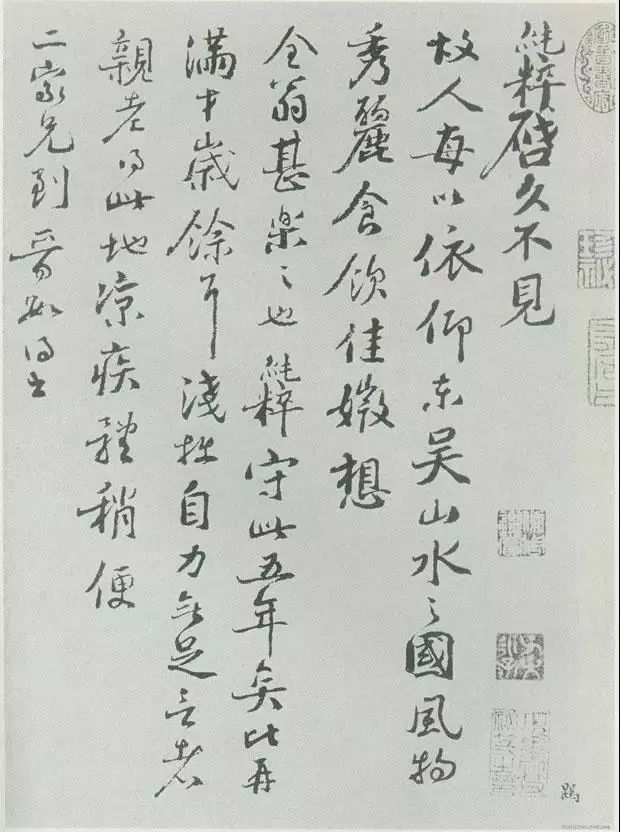 純粹啓久不見
故人每以依仰東吳山水之國風物
秀麗食飲佳媺想
全翁甚樂之也純粹守此五年矣比再
滿才歲餘耳淺拙自力無足言者
親老得此地涼疾體稍便
二家兄到晉得書